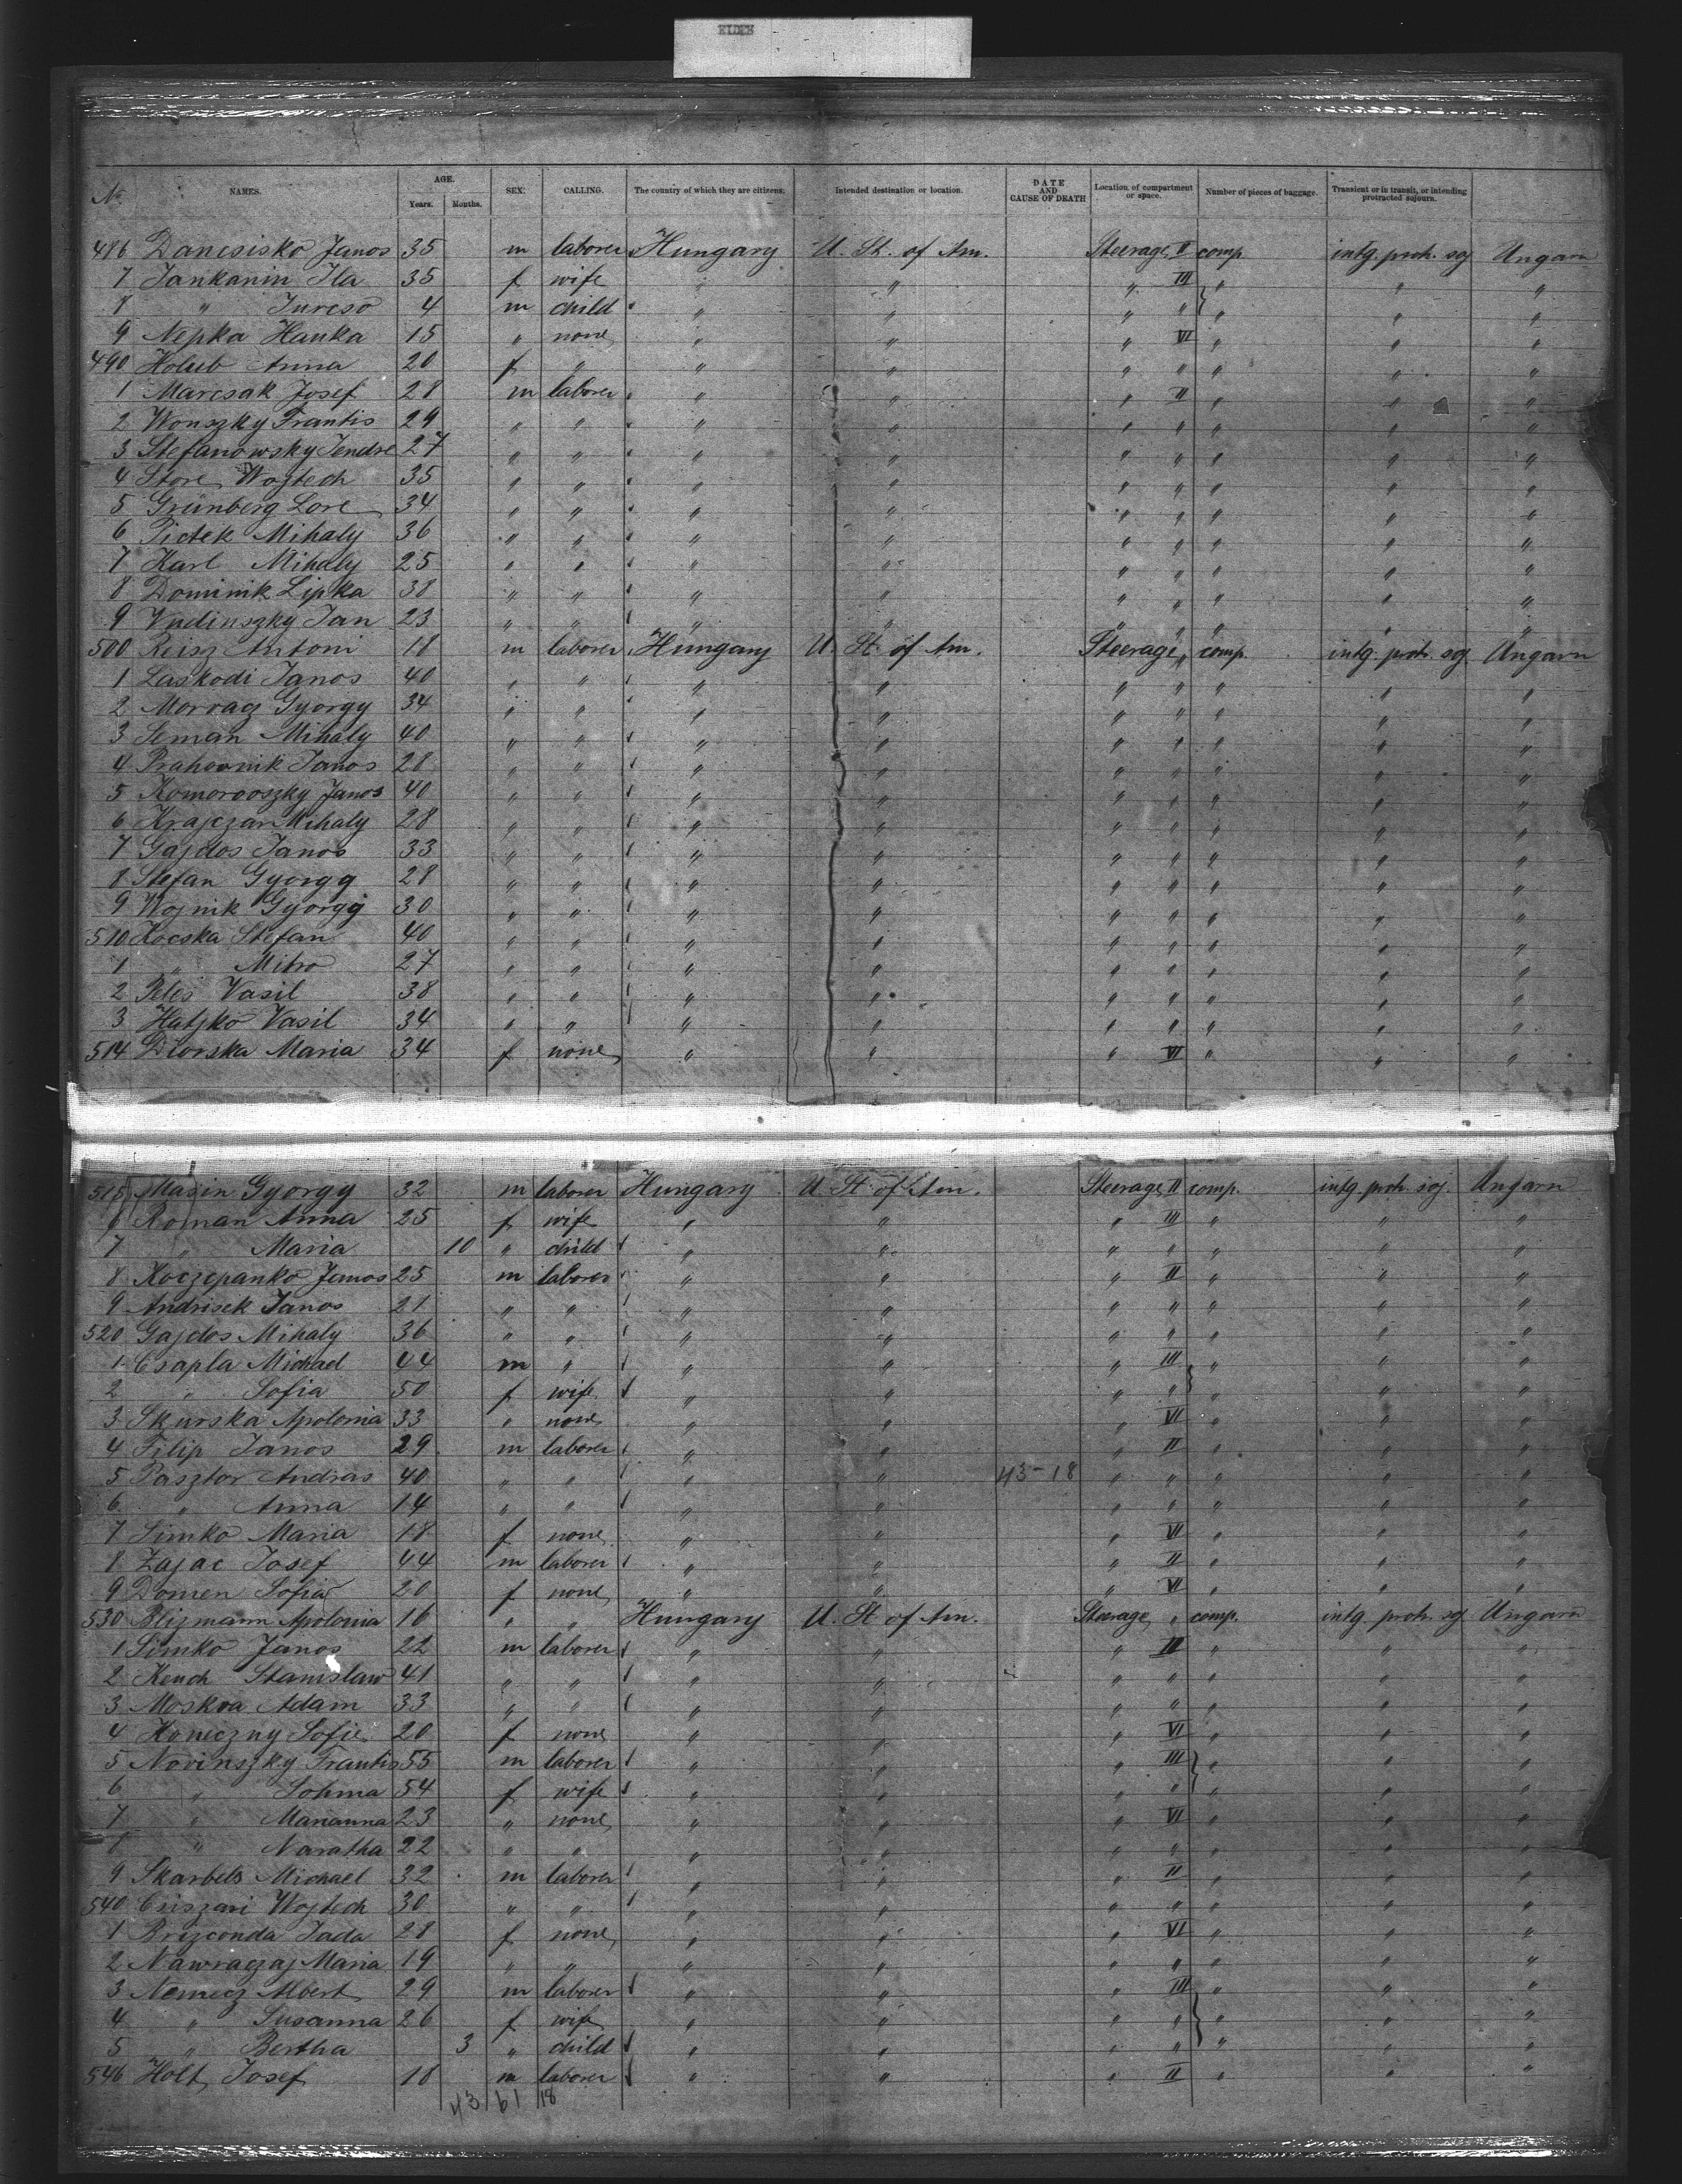 ELDEN
No. NAMES. AGE. Years. Months. SEX. CALLING. The country of which they are citizens. Intended destination or location. DATE AND CAUSE OF DEATH Location of compartment or space. Number of pieces of baggage. Transient or in transit, or intending protracted sojourn.
486 Dancsisko Janos 35 m laborer Hungary U. St. of Am. Steerage II comp. intg. proh. soj Ungarn
7 Jankanin Ila 35 f wife " " " III " " "
8 " Jurcso 4 m child " " " " " " "
9 Nepka Hanka 15 " none " " " VI " " "
490 Holub Anna 20 f " " " " " " " "
1 Marcsak Josef 28 m laborer " " " II " " "
2 Wonszky Frantis 29 " " " " " " " " "
3 Stefanowsky Jendre 27 " " " " " " " " "
4 Store Wojtech 35 " " " " " " " " "
5 Grünberg Lore 34 " " " " " " " " "
6 Pictek Mihaly 36 " " " " " " " " "
7 Karl Mihaly 25 " " " " " " " " "
8 Dominik Lipka 38 " " " " " " " " "
9 Vndinszky Jan 23 " " " " " " " " "
500 Reisz Antoni 18 m laborer Hungary U. St. of Am. Steerage " comp. intg. proh. soj Ungarn
1 Laskodi Janos 40 " " " " " " " " "
2 Morvag Gyorgy 34 " " " " " " " " "
3 Seman Mihaly 40 " " " " " " " " "
4 Prahovnik Janos 28 " " " " " " " " "
5 Komorovszky Janos 40 " " " " " " " " "
6 Krajczar Mihaly 28 " " " " " " " " "
7 Gajdos Janos 33 " " " " " " " " "
8 Stefan Gyorgy 28 " " " " " " " " "
9 Wojnik Gyorgy 30 " " " " " " " " "
510 Kocska Stefan 40 " " " " " " " " "
1 " Mitro 27 " " " " " " " " "
2 Peles Vasil 38 " " " " " " " " "
3 Hatjko Vasil 34 " " " " " " " " "
514 Diorska Maria 34 f none " " " VI " " "
515 Masin Gyorgy 32 m laborer Hungary U. St. of Am. Steerage II comp. intg. proh. soj. Ungarn
6 Roman Anna 25 f wife " " " III " " "
7 " Maria 10 " child " " " " " " "
8 Koczepanko Janos 25 m laborer " " " II " " "
9 Andrisek Janos 21 " " " " " " " " "
520 Gajdos Mihaly 36 " " " " " " " " "
1 Csapla Michael 44 m " " " " III " " "
2 " Sofia 50 f wife " " " " " " "
3 Skurska Apolonia 33 " none " " " VI " " "
4 Filip Janos 29 m laborer " " " II " " "
5 Pasztor Andras 40 " " " " 43-18 " " " " "
6 " Anna 14 " " " " " " " " "
7 Simko Maria 18 f none " " " VI " " "
8 Zajac Josef 44 m laborer " " " II " " "
9 Domen Sofia 20 f none " " " VI " " "
530 Blizmann Apolonia 16 " " Hungary U. St of Am. Steerage " comp. intg. proh. soj Ungarn
1 Simko Janos 22 m laborer " " " III " " "
2 Keuch Stanislaw 41 " " " " " " " " "
3 Moskva Adam 33 " " " " " " " " "
4 Honiczny Sofie 20 f none " " " VI " " "
5 Novinszky Frantis 55 m laborer " " " III " " "
6 " Sohma 54 f wife " " " " " " "
7 " Marianna 23 " none " " " VI " " "
8 " Naratha 22 " " " " " " " " "
9 Skarbels Michael 32 m laborer " " " II " " "
540 Csiszari Wojtech 30 " " " " " " " " "
1 Brizconda Jada 28 f none " " " VI " " "
2 Nawraczaj Maria 19 " " " " " " " " "
3 Nemecz Albert 29 m laborer " " " III " " "
4 " Susanna 26 f wife " " " " " " "
5 " Bertha 3 " child " " " " " " "
546 Holt Josef 18 m laborer " " " II " " "
43/61/18